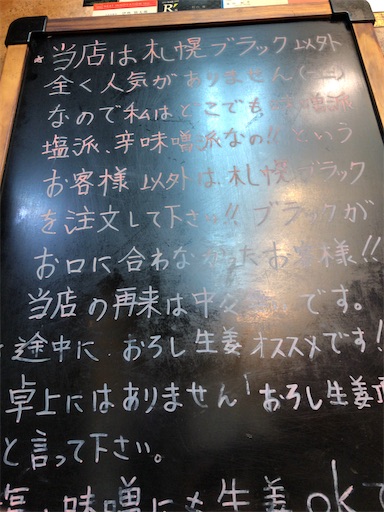 ★当店は札幌ブラック以外
全く人気がありません
なので私はどこでも味噌派
塩派、辛味噌派なの!!という
お客様以外は札幌ブラック
を注文して下さい!! ブラックが
お口に合わなかったお客様!!
当店の再来は中々です。
途中に、おろし生姜オススメです!
卓上にはありません「おろし生姜
と言って下さい。
塩、味噌にも生姜ok